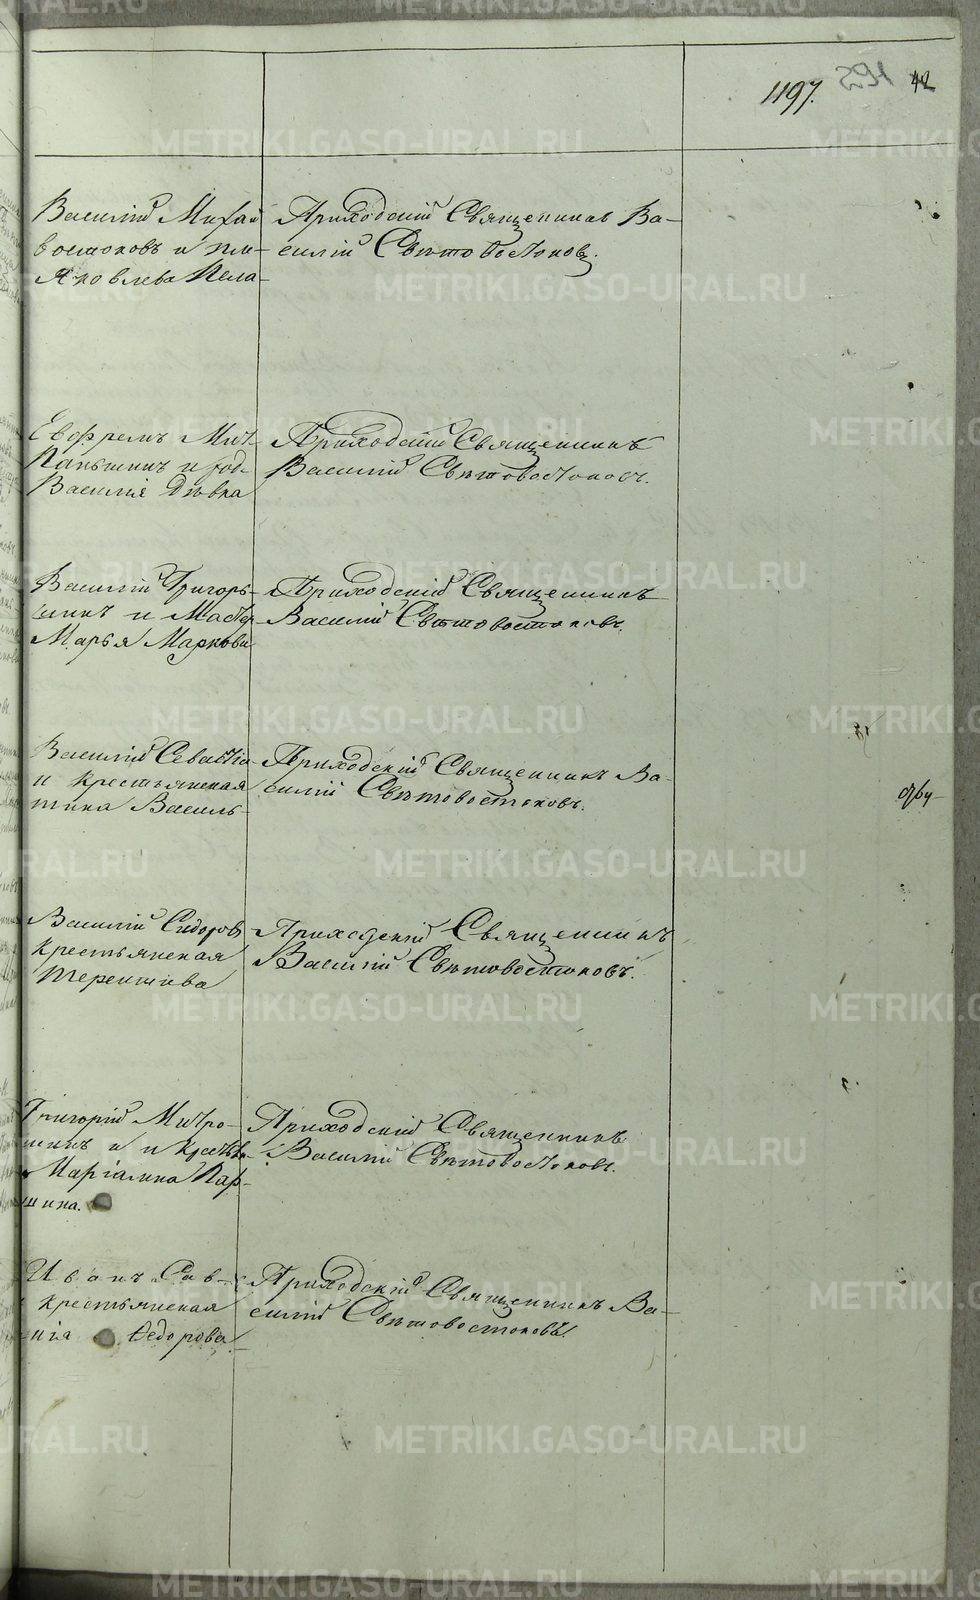 1197.
42
Василій Михай
востоковъ и
Яковлева Пела-
Приходскій Священникъ Ва-
силій Свѣтовостоковъ.
Евфремъ Мит-
Паньшинъ и
Василія Дѣвка
Приходскій Священникъ
Василій Свѣтовостоковъ.
Василій Григорь-
шинъ и Мастер
Марья Маркова
Приходскій Священникъ
Василій Свѣтовостоковъ.
Василій Севастіа
и Крестьянская
тина Василь-
Приходскій Священникъ Ва-
силій Свѣтовостоковъ.
Василій Сидоров
Крестьянская
Терентіева
Приходскій Священникъ
Василій Свѣтовостоковъ.
Григорій Митро-
шинъ и
Маріамна Пар-
шина.
Приходскій Священникъ
Василій Свѣтовостоковъ.
Иванъ Сав-
крестьянская
нія Ѳедорова
Приходскій Священникъ Ва-
силій Свѣтовостоковъ.
METRIKI.GASO-URAL.RU